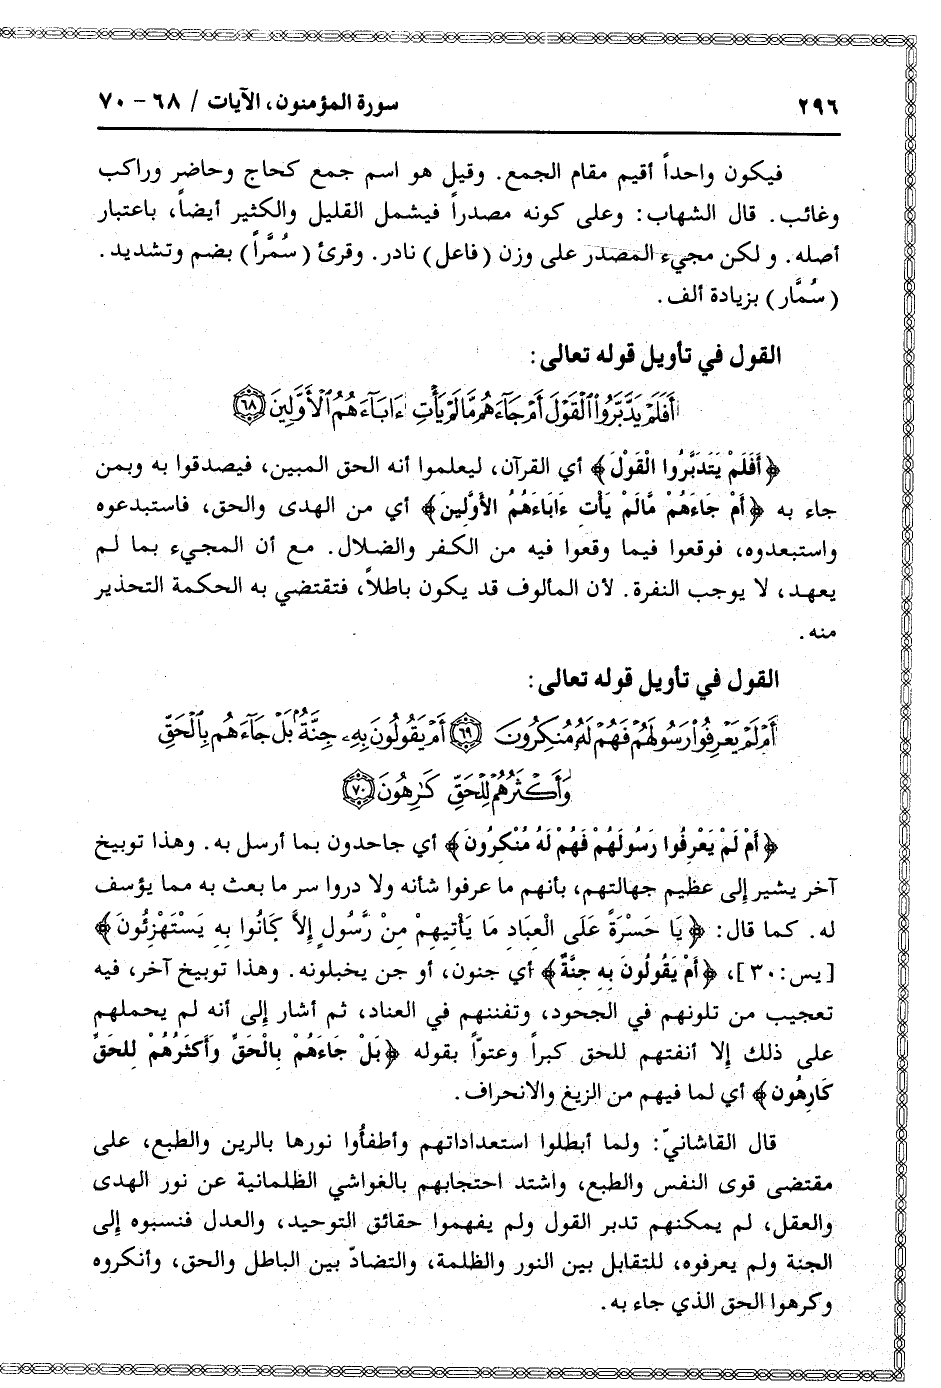 ٢٩٦ سورة المؤمنون، الآيات / ٦٨ - ٧٠
فيكون واحداً أقيم مقام الجمع. وقيل هو اسم جمع كحاج وحاضر وراكب
وغائب. قال الشهاب: وعلى كونه مصدراً فيشمل القليل والكثير أيضاً، باعتبار
أصله. و لكن مجيء المصدر على وزن (فاعل) نادر. وقرئ (سُمَّراً) بضم وتشديد.
(سُمَّار) بزيادة ألف.
القول في تأويل قوله تعالى:
أَفَلَمْ يَدَّبَّرُواْ ٱلْقَوْلَ أَمْ جَآءَهُم مَّا لَمْ يَأْتِ ءَابَآءَهُمُ ٱلْأَوَّلِينَ ٦٨
﴿أَفَلَمْ يَتَدَبَّرُوا الْقَوْلَ﴾ أي القرآن، ليعلموا أنه الحق المبين، فيصدقوا به وبمن
جاء به ﴿أَمْ جَاءَهُمْ مَّالَمْ يَأْتِ ءَابَاءَهُمُ الأَوَّلِينَ﴾ أي من الهدى والحق، فاستبدعوه
واستبعدوه، فوقعوا فيما وقعوا فيه من الكفر والضلال. مع أن المجيء بما لم
يعهد، لا يوجب النفرة. لأن المألوف قد يكون باطلاً، فتقتضي به الحكمة التحذير
منه.
القول في تأويل قوله تعالى:
أَمْ لَمْ يَعْرِفُواْ رَسُولَهُمْ فَهُمْ لَهُۥ مُنكِرُونَ ٦٩ أَمْ يَقُولُونَ بِهِۦ جِنَّةٌۢ بَلْ جَآءَهُم بِٱلْحَقِّ
وَأَكْثَرُهُمْ لِلْحَقِّ كَٰرِهُونَ ٧٠
﴿أَمْ لَمْ يَعْرِفُوا رَسُولَهُمْ فَهُمْ لَهُ مُنْكِرُونَ﴾ أي جاحدون بما أرسل به. وهذا توبيخ
آخر يشير إلى عظيم جهالتهم، بأنهم ما عرفوا شأنه ولا دروا سر ما بعث به مما يؤسف
له. كما قال: ﴿يَا حَسْرَةً عَلَى الْعِبَادِ مَا يَأْتِيهِمْ مِنْ رَّسُولٍ إِلاَّ كَانُوا بِهِ يَسْتَهْزِئُونَ﴾
[يس:٣٠]، ﴿أَمْ يَقُولُونَ بِهِ جِنَّةٌ﴾ أي جنون، أو جن يخبلونه. وهذا توبيخ آخر، فيه
تعجيب من تلونهم في الجحود، وتفننهم في العناد، ثم أشار إلى أنه لم يحملهم
على ذلك إلا أنفتهم للحق كبراً وعتوّاً بقوله ﴿بَلْ جَاءَهُمْ بِالْحَقِّ وَأَكْثَرُهُمْ لِلحَقِّ
كَارِهُون﴾ أي لما فيهم من الزيغ والانحراف.
قال القاشانيّ: ولما أبطلوا استعداداتهم وأطفأُوا نورها بالرين والطبع، على
مقتضى قوى النفس والطبع، واشتد احتجابهم بالغواشي الظلمانية عن نور الهدى
والعقل، لم يمكنهم تدبر القول ولم يفهموا حقائق التوحيد، والعدل فنسبوه إلى
الجنة ولم يعرفوه، للتقابل بين النور والظلمة، والتضادّ بين الباطل والحق، وأنكروه
وكرهوا الحق الذي جاء به.